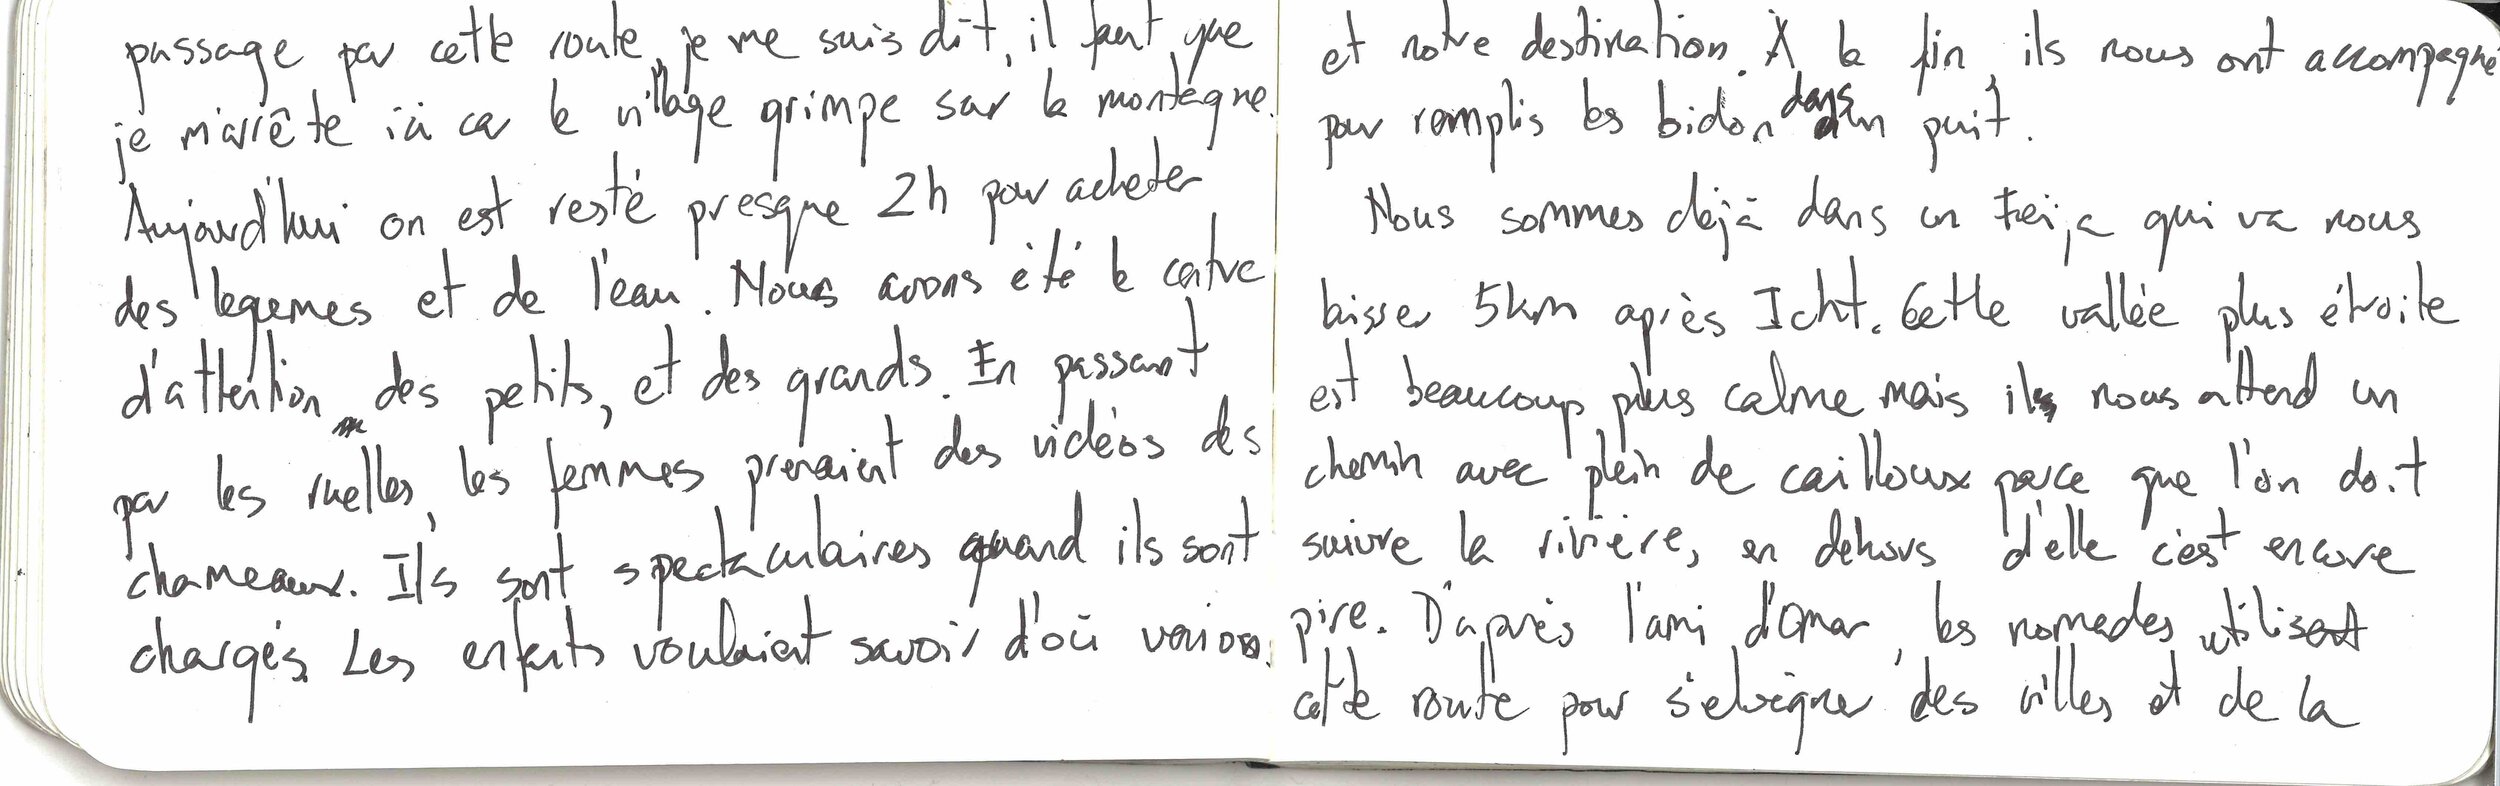 passage par cette route, je me suis dit, il faut que
je m'arrête ici car le village grimpe sur la montagne.
Aujourd'hui on est resté presque 2h pour acheter
des legumes et de l'eau. Nous avons été le centre
d'attention des petits, et des grands. En passant
par les ruelles, les femmes prenaient des vidéos des
chameaux. Ils sont spectaculaires quand ils sont
chargés. Les enfants voulaient savoir d'où venions
et notre destination. À la fin, ils nous ont accompagné
pour remplis les bidon dans un puit.
Nous sommes dejà dans un Feija qui va nous
laisser 5km après Icht. Cette vallée plus étroite
est beaucoup plus calme mais il nous attend un
chemin avec plein de cailloux parce que l'on doit
suivre la rivière, en dehors d'elle c'est encore
pire. D'après l'ami d'Omar, les nomades utilisent
cette route pour s'eloigner des villes et de la